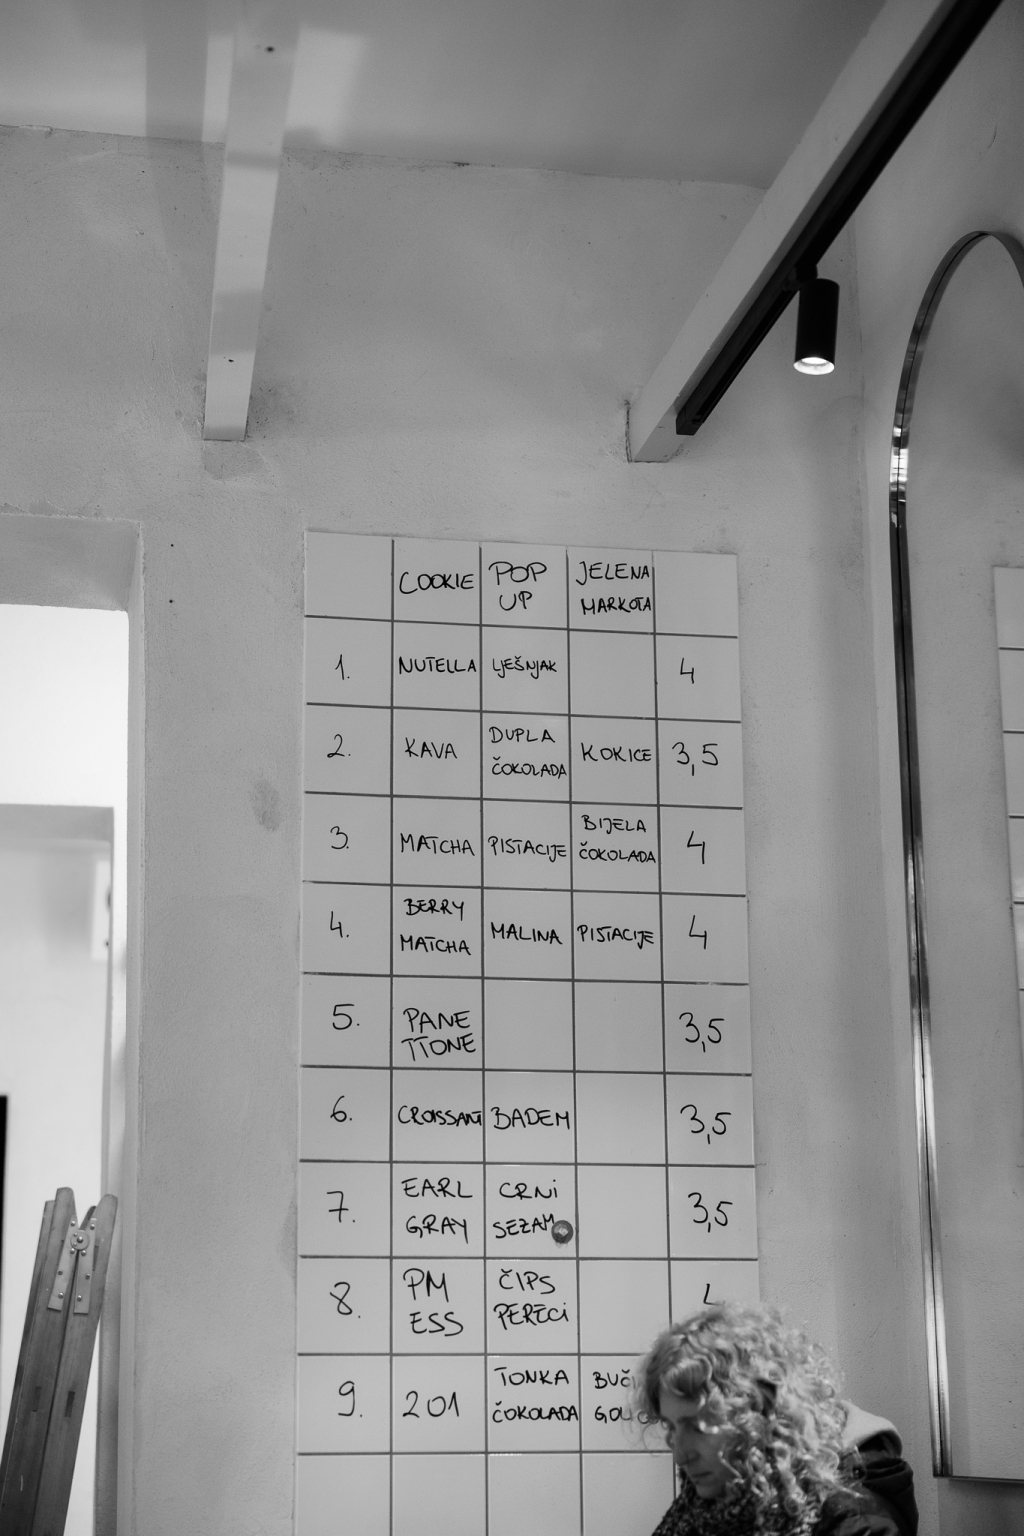 COOKIE POP UP JELENA MARKOTA
1. NUTELLA LJEŠNJAK 4
2. KAVA DUPLA ČOKOLADA KOKICE 3,5
3. MATCHA PISTACIJE BIJELA ČOKOLADA 4
4. BERRY MATCHA MALINA PISTACIJE 4
5. PANE TTONE 3,5
6. CROISSANT BADEM 3,5
7. EARL GRAY CRNI SEZAM 3,5
8. PM ESS ČIPS PERECI
9. 201 TONKA ČOKOLADA